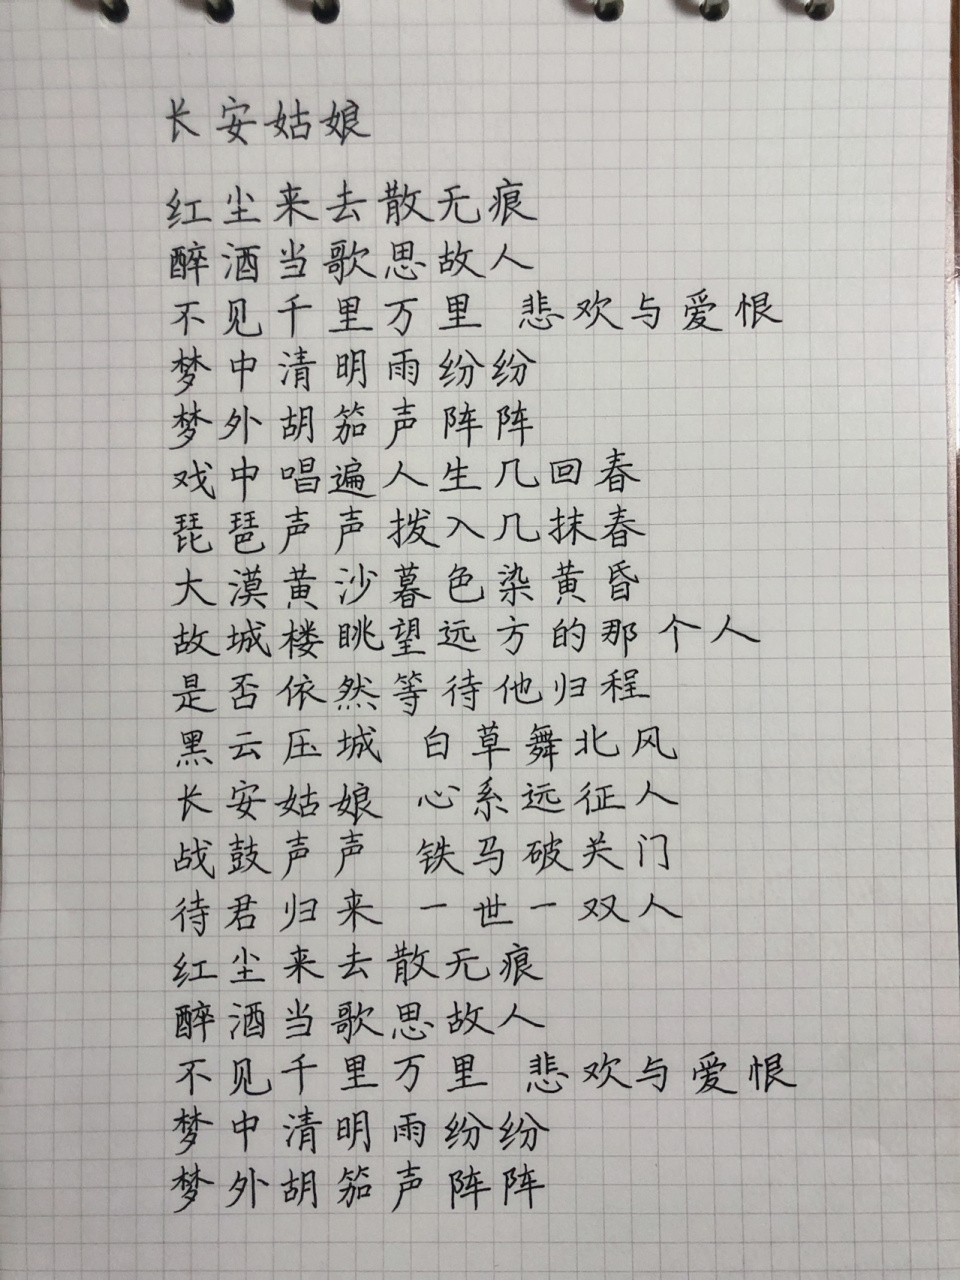 长安姑娘
红尘来去散无痕
醉酒当歌思故人
不见千里万里 悲欢与爱恨
梦中清明雨纷纷
梦外胡笳声阵阵
戏中唱遍人生几回春
琵琶声声拨入几抹春
大漠黄沙暮色染黄昏
故城楼眺望远方的那个人
是否依然等待他归程
黑云压城 白草舞北风
长安姑娘 心系远征人
战鼓声声 铁马破关门
待君归来 一世一双人
红尘来去散无痕
醉酒当歌思故人
不见千里万里 悲欢与爱恨
梦中清明雨纷纷
梦外胡笳声阵阵